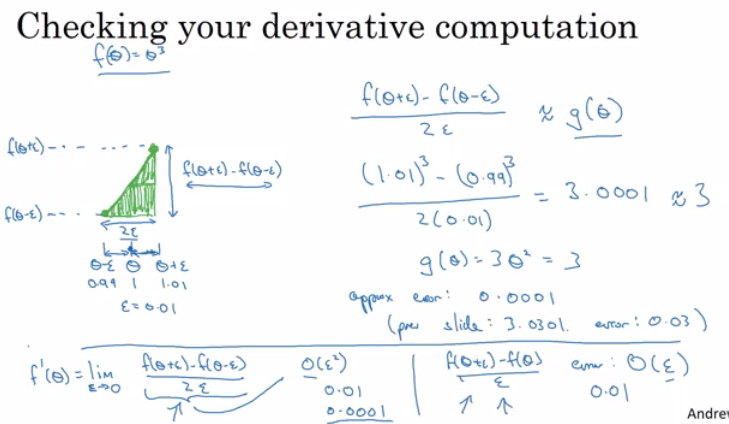 Checking your derivative computation
f(θ) = θ³
f(θ+ε) - f(θ-ε)
2ε
≈ g(θ)
f(θ+ε)
f(θ+ε) - f(θ-ε)
(1.01)³ - (0.99)³
2(0.01)
= 3.0001 ≈ 3
f(θ-ε)
2ε
θ-ε θ θ+ε
0.99 1 1.01
ε = 0.01
g(θ) = 3θ² = 3
approx error: 0.0001
(prev slide: 3.0301. error: 0.03)
f'(θ) = lim
ε→0
f(θ+ε) - f(θ-ε)
2ε
O(ε²)
0.01
0.0001
f(θ+ε) - f(θ)
ε
error: O(ε)
0.01
Andrew